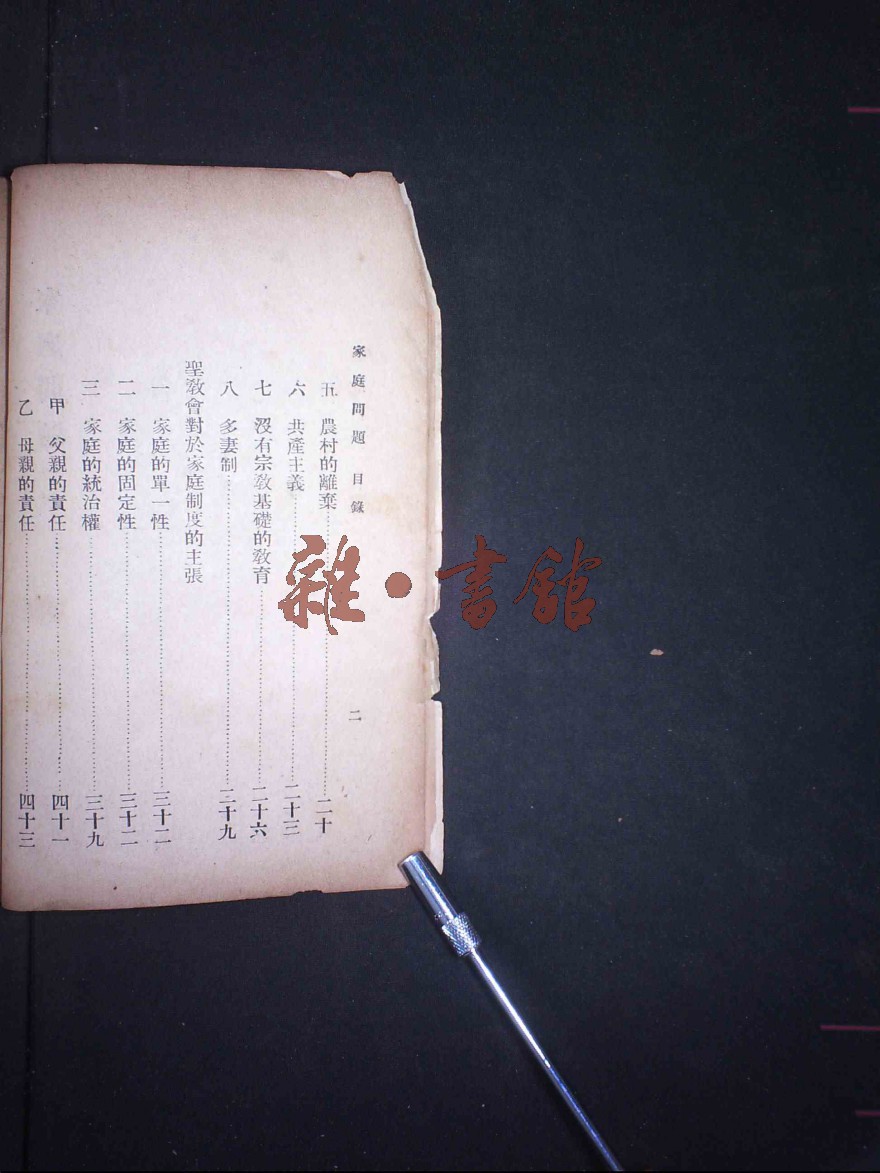 家庭問題 目錄 二
五 農村的離棄 二十
六 共產主義 二十三
七 沒有宗教基礎的教育 二十六
八 多妻制 二十九
聖教會對於家庭制度的主張
一 家庭的單一性 三十二
二 家庭的固定性 三十二
三 家庭的統治權 三十九
甲 父親的責任 四十一
乙 母親的責任 四十三
雜•書館